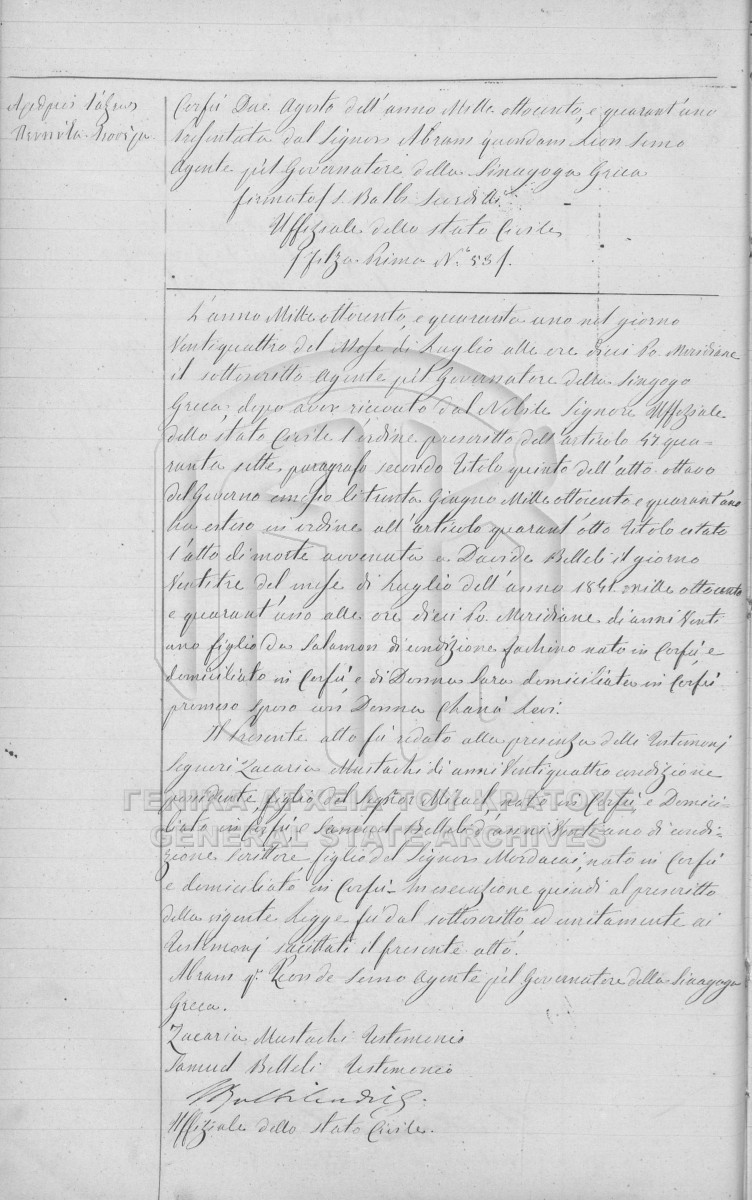 Αριθμός τάξεως
Πενήντα
Corfù Due Agosto dell'anno Mille ottocento, e quarant'uno
Presentata dal Signore Abram quondam Leon Semo
Agente pèl Governatore della Sinagoga Greca
firmato / S. Balbi
Uffiziale dello Stato Civile
/ Filza Prima Nº 53 /.
L'anno Mille ottocento, e quaranta uno nel giorno
Ventiquattro del Mese di Luglio alle ore dieci Po. Meridiane
il sottoscritto Agente pèl Governatore della Sinagogo
Greca, dopo avor ricevato dal Nobile Signore Uffiziale
dello Stato Civile l'ordine prescritto dell'articolo 47 qua-
ranta sette, paragrafo secondo titolo quinto dell'atto ottavo
del Governo emesso li trenta Giugno Mille ottocento e quarant'uno
ha esteso in ordine all'articolo quarant'otto titolo
l'atto di morte avvenuta a Davide Belleli il giorno
Ventitre del mese di Luglio dell'anno 1841 mille ottocento
e quarant'uno alle ore dieci Po. Meridiane di anni Venti
uno figlio da Salamon di condizione fachino nato in Corfù e
domiciliato in Corfù e di Donna Sara domiciliata in Corfù
premeso sposo con Donna Chanà Levi.
Il Presente atto fù redato alla presenza delli Testimonj
Segnori Zacaria Mustachi di anni Ventiquattro condizione
figlio del Signor Micael nato in Corfù e Domici-
ΓΕΝΙΚΑ ΑΡΧΕΙΑ ΤΟΥ ΚΡΑΤΟΥΣ
liato in Corfù e Samuel Belleli d'anni Vent'uno di condi-
GENERAL STATE ARCHIVES
zione Scrittore figlio del Signore Mordacai, nato in Corfù
e domiciliato in Corfù. In esecuzione quindi al prescritto
della vigente Legge fù dal sottoscritto ed unitamente ai
Testimonj il presente atto.
Abram qm. Leon de Semo Agente pèl Governatore della Sinagoga
Greca.
Zacaria Mustachi Testimonio
Samuel Belleli Testimonio
Uffiziale dello Stato Civile.